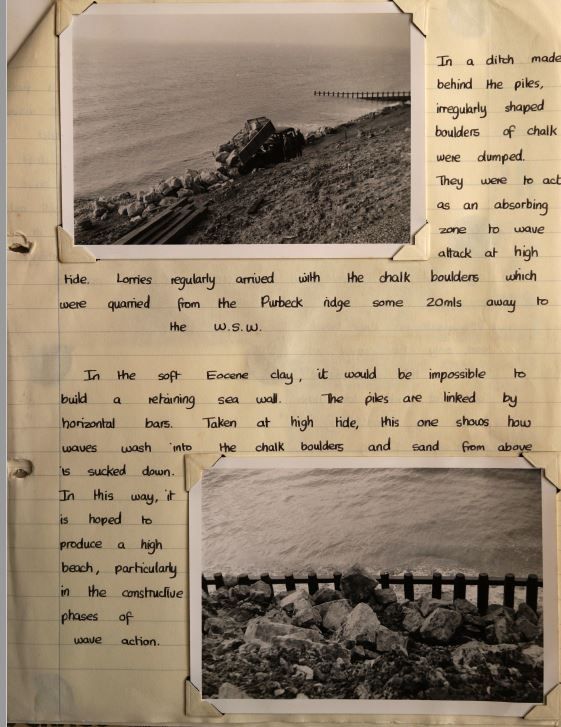 In a ditch made
behind the piles,
irregularly shaped
boulders of chalk
were dumped.
They were to act
as an absorbing
zone to wave
attack at high
tide. Lorries regularly arrived with the chalk boulders which
were quarried from the Purbeck ridge some 20mls away to
the W.S.W.
In the soft Eocene clay, it would be impossible to
build a retaining sea wall. The piles are linked by
horizontal bars. Taken at high tide, this one shows how
waves wash into the chalk boulders and sand from above
is sucked down.
In this way, it
is hoped to
produce a high
beach, particularly
in the constructive
phases of
wave action.